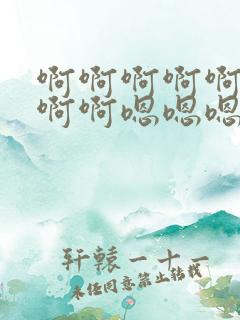 啊啊啊啊啊
啊啊嗯嗯嗯
轩辕一十一
未经同意禁止转载